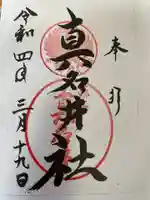 奉拝
真名井社
令和四年三月十九日